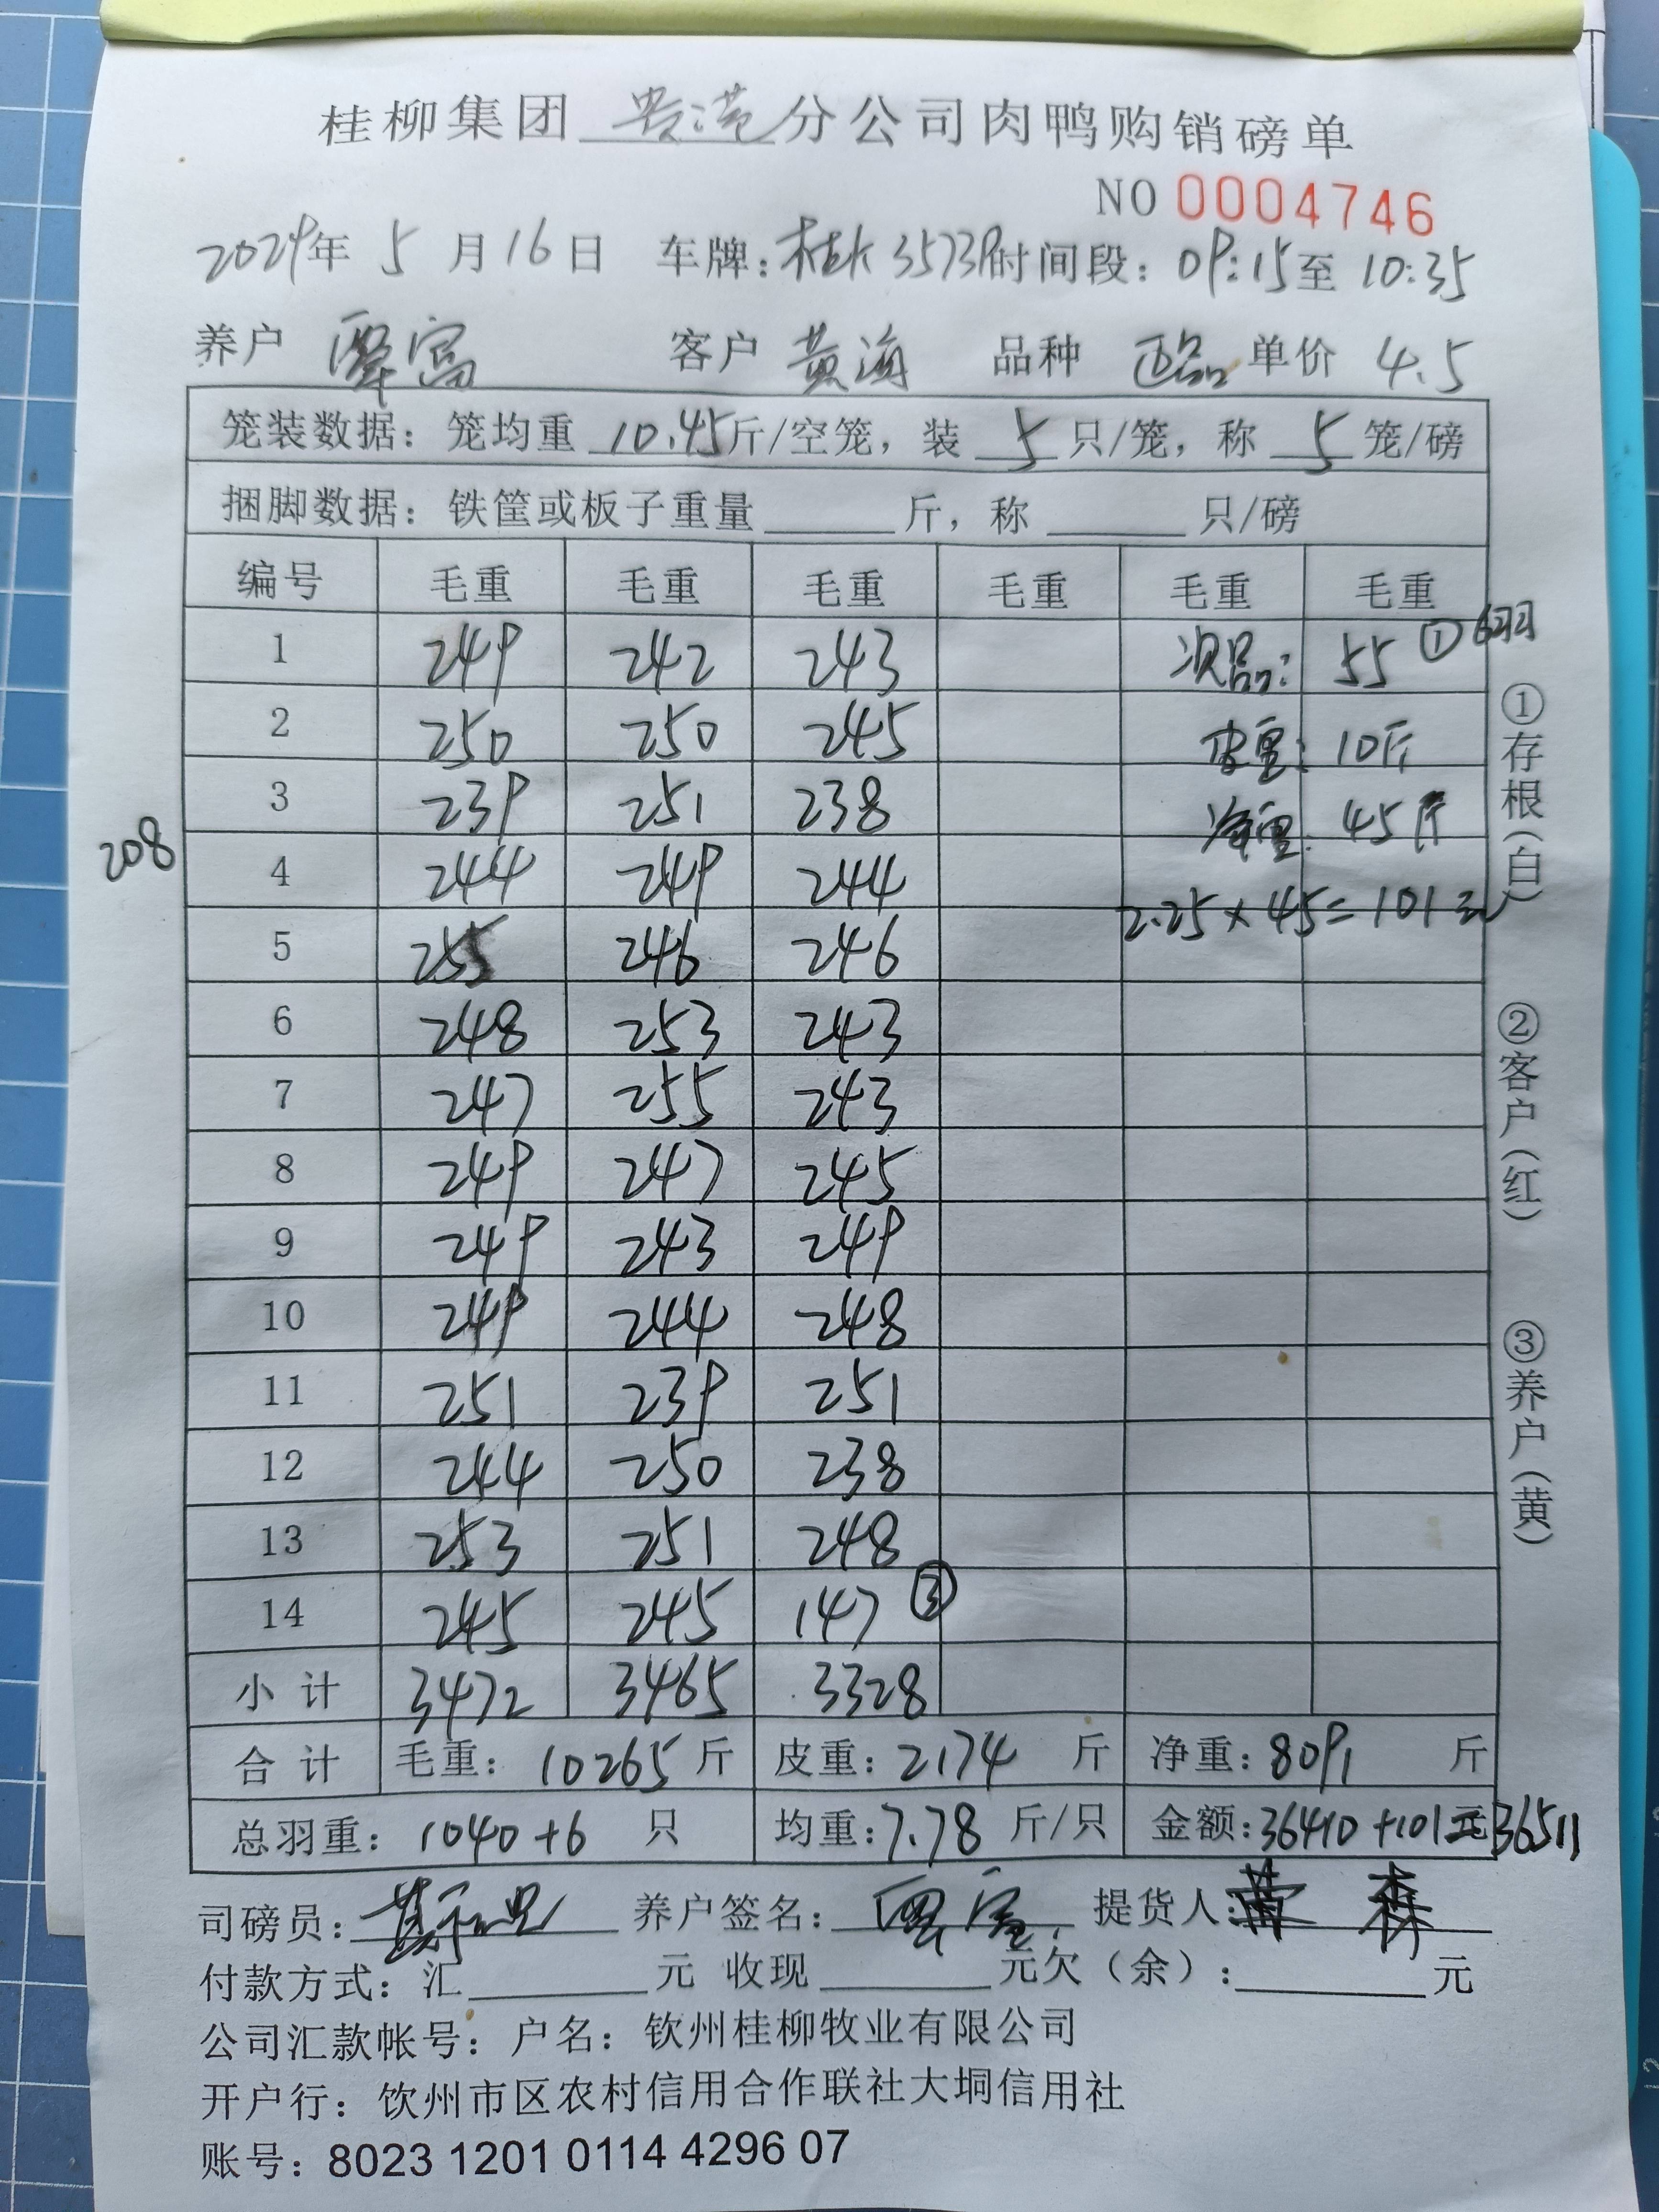 桂柳集团 贵港 分公司肉鸭购销磅单
NO 0004746
2024年 5 月 16 日 车牌: 桂K35739 时间段: 09:15 至 10:35
养户 覃富 客户 黄海 品种 正品 单价 4.5
笼装数据: 笼均重 10.45 斤/空笼, 装 5 只/笼, 称 5 笼/磅
捆脚数据: 铁筐或板子重量 斤, 称 只/磅
编号 毛重 毛重 毛重 毛重 毛重 毛重
1 249 242 243 次品: 55 ① 6羽
2 250 250 245 皮重: 10斤
3 239 251 238 净重: 45斤
208
4 244 249 244 2.25×45=101元
5 255 246 246
6 248 253 243
7 247 255 243
8 249 247 245
9 249 243 249
10 249 244 248
11 251 239 251
12 244 250 238
13 253 251 248
14 245 245 147 ③
小计 3472 3465 3328
合计 毛重: 10265 斤 皮重: 2174 斤 净重: 8091 斤
总羽重: 1040+6 只 均重: 7.78 斤/只 金额: 36410+101元 36511
①存根(白) ②客户(红) ③养户(黄)
司磅员: 养户签名: 覃富 提货人: 黄森
付款方式: 汇 元 收现 元欠(余): 元
公司汇款帐号: 户名: 钦州桂柳牧业有限公司
开户行: 钦州市区农村信用合作联社大垌信用社
账号: 8023 1201 0114 4296 07